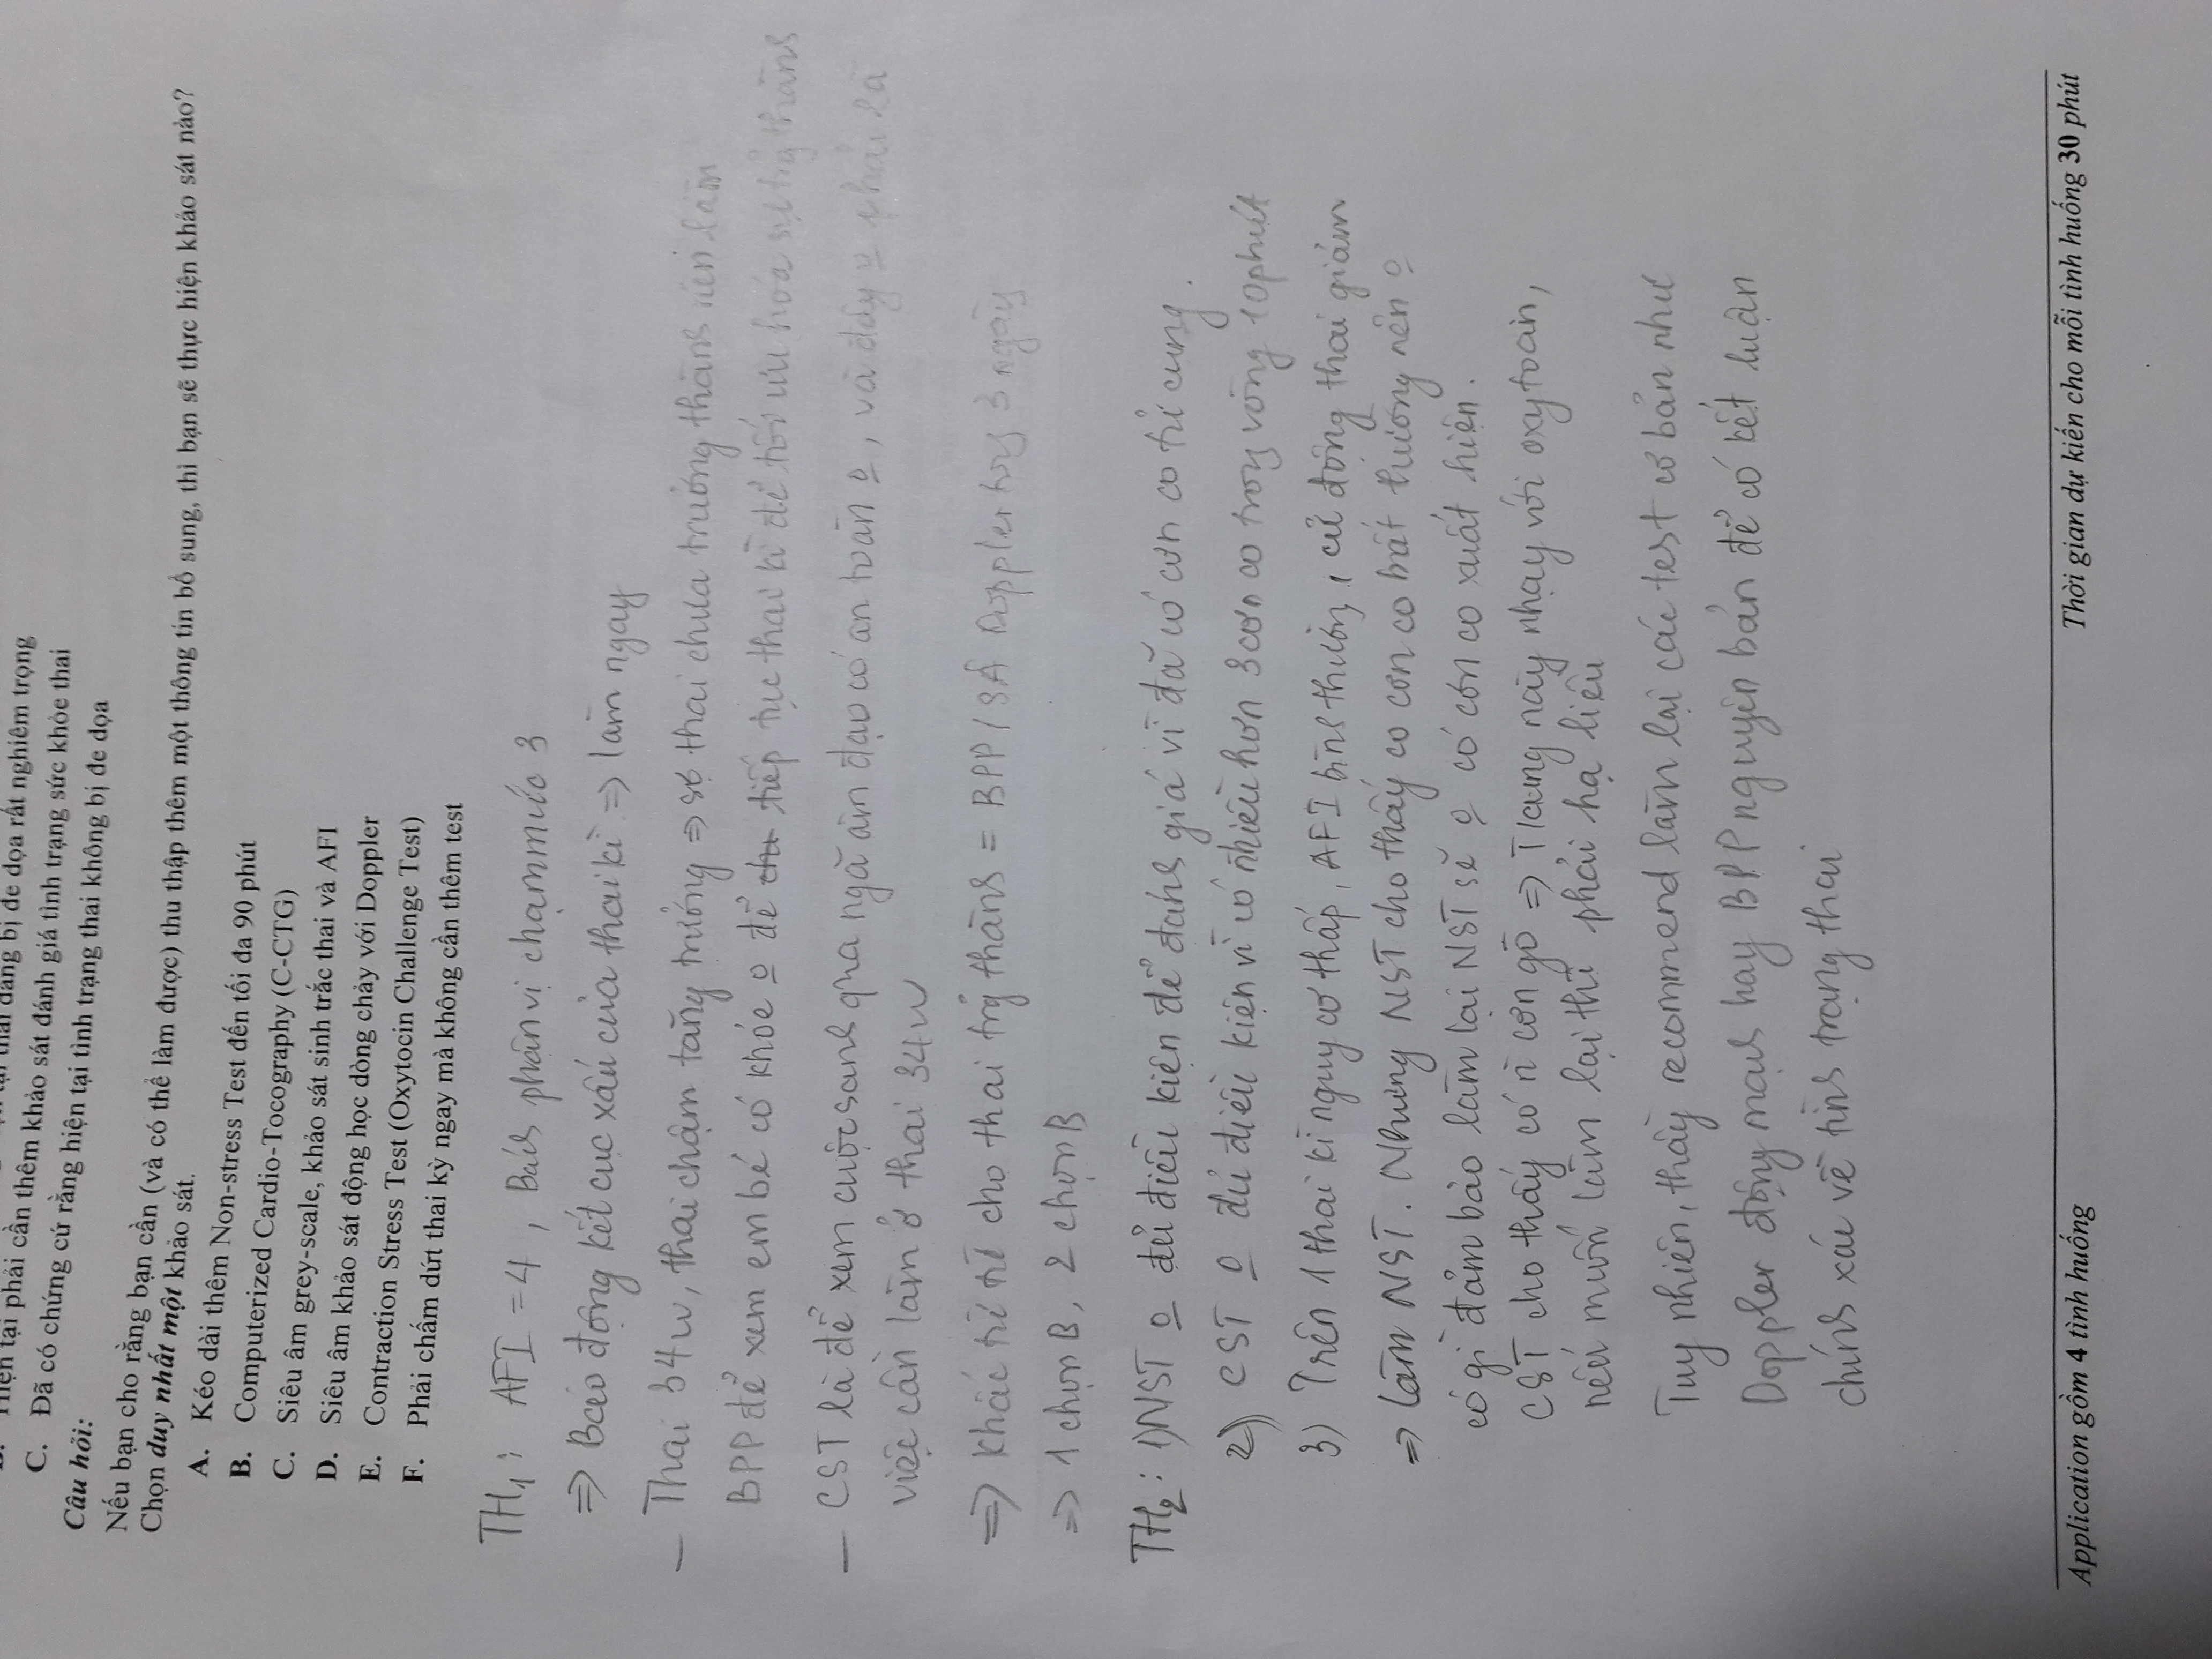 B. Hiện tại phải cần thêm khảo sát đánh giá tình trạng sức khỏe thai
thai đang bị đe dọa rất nghiêm trọng
C. Đã có chứng cứ rằng hiện tại tình trạng thai không bị đe dọa
Câu hỏi:
Nếu bạn cho rằng bạn cần (và có thể làm được) thu thập thêm một thông tin bổ sung, thì bạn sẽ thực hiện khảo sát nào?
Chọn duy nhất một khảo sát.
A. Kéo dài thêm Non-stress Test đến tối đa 90 phút
B. Computerized Cardio-Tocography (C-CTG)
C. Siêu âm grey-scale, khảo sát sinh trắc thai và AFI
D. Siêu âm khảo sát động học dòng chảy với Doppler
E. Contraction Stress Test (Oxytocin Challenge Test)
F. Phải chấm dứt thai kỳ ngay mà không cần thêm test
TH1: AFI = 4, Bách phân vị chạm mức 3
=> Báo động kết cục xấu của thai kì => làm ngay
— Thai 34w, thai chậm tăng trưởng => sợ thai chưa trưởng thành nên làm
BPP để xem em bé có khỏe o để tiếp tục thai kì để tối ưu hóa sự trg thành
— CST là để xem cuộc sanh qua ngã âm đạo có an toàn o, và đây o phải là
việc cần làm ở thai 34w
=> Khắc trĩ cho thai trg thành = BPP / SÂ Doppler trg 3 ngày
=> 1 chọn B, 2 chọn B
TH2: 1) NST o đủ điều kiện để đánh giá vì đã có cơn co tử cung.
2) CST o đủ điều kiện vì có nhiều hơn 3 cơn co trong vòng 10 phút
3) Trên 1 thai kì nguy cơ thấp, AFI bình thường, cử động thai giảm
=> làm NST. Nhưng NST cho thấy có cơn co bất thường nên o
có gì đảm bảo làm lại NST sẽ o có cơn co xuất hiện.
CST cho thấy có n cơn gò => T/cung này nhạy với oxytocin,
nếu muốn làm lại thì phải hạ liều
Tuy nhiên, thầy recommend làm lại các test cơ bản như
Doppler động mạch hay BPP nguyên bản để có kết luận
chính xác về tình trạng thai
Application gồm 4 tình huống
Thời gian dự kiến cho mỗi tình huống 30 phút